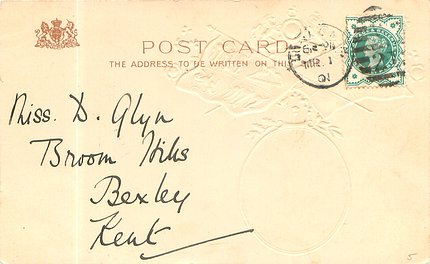 POST CARD
THE ADDRESS TO BE WRITTEN ON THIS
Miss. D. Glyn
Broom Hills
Bexley
Kent
5